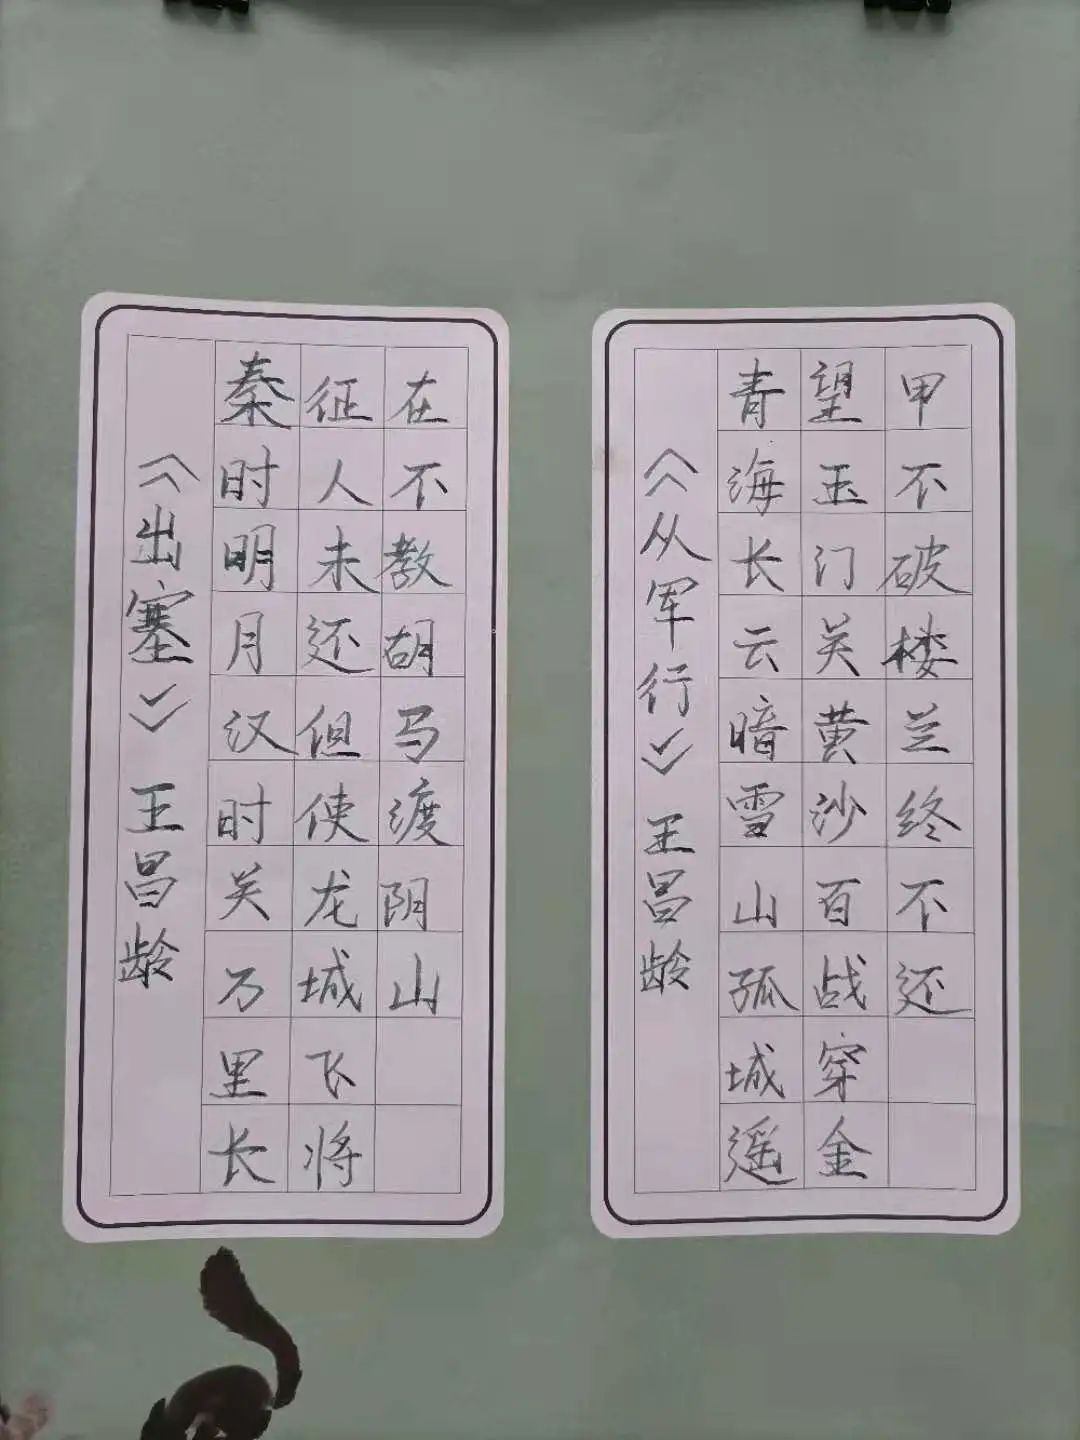 《出塞》王昌龄
秦时明月汉时关万里长
征人未还但使龙城飞将
在不教胡马渡阴山
《从军行》王昌龄
青海长云暗雪山孤城遥
望玉门关黄沙百战穿金
甲不破楼兰终不还